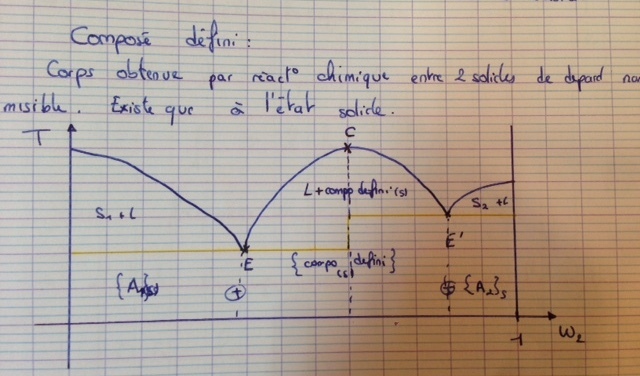 Composé défini :
Corps obtenue par réact° chimique entre 2 solides de depard non
misible. Existe que à l'état solide.
T
C
L + compo defini (s)
S₁ + L
S₂ + L
E
E'
{compo (s) défini}
+
{A₂}s
1
W₂